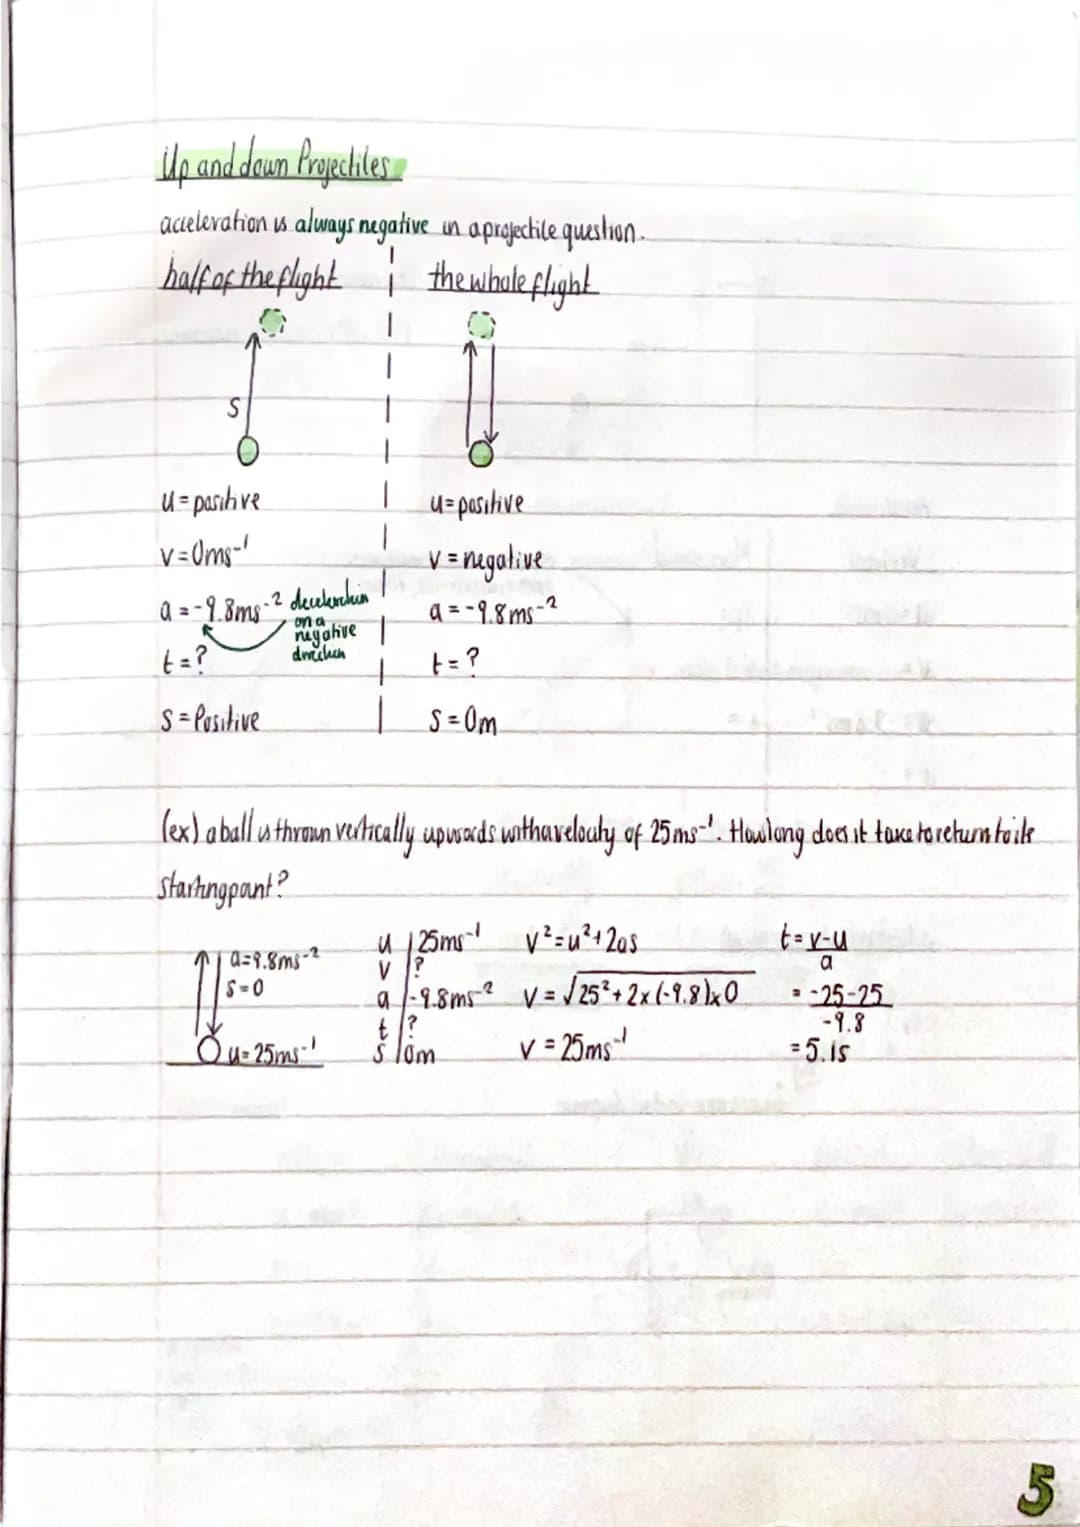 Up and down Projectiles
acceleration is always negative in a projectile question.
half of the flight
the whole flight
S
u = positive
v = 0ms⁻¹
a = -9.8ms⁻² deceleration
on a
negative
direction
t = ?
S = Positive
u = positive
v = negative
a = -9.8ms⁻²
t = ?
S = 0m
(ex) a ball is thrown vertically upwards with a velocity of 25ms⁻¹. How long does it take to return to its
starting point?
a=9.8ms⁻²
S=0
u=25ms⁻¹
u 25ms⁻¹
v ?
a -9.8ms⁻²
t ?
s 0m
v²=u²+2as
v = √25²+2x(-9.8)x0
v = 25ms⁻¹
t = v-u
a
= -25-25
-9.8
= 5.1s
5